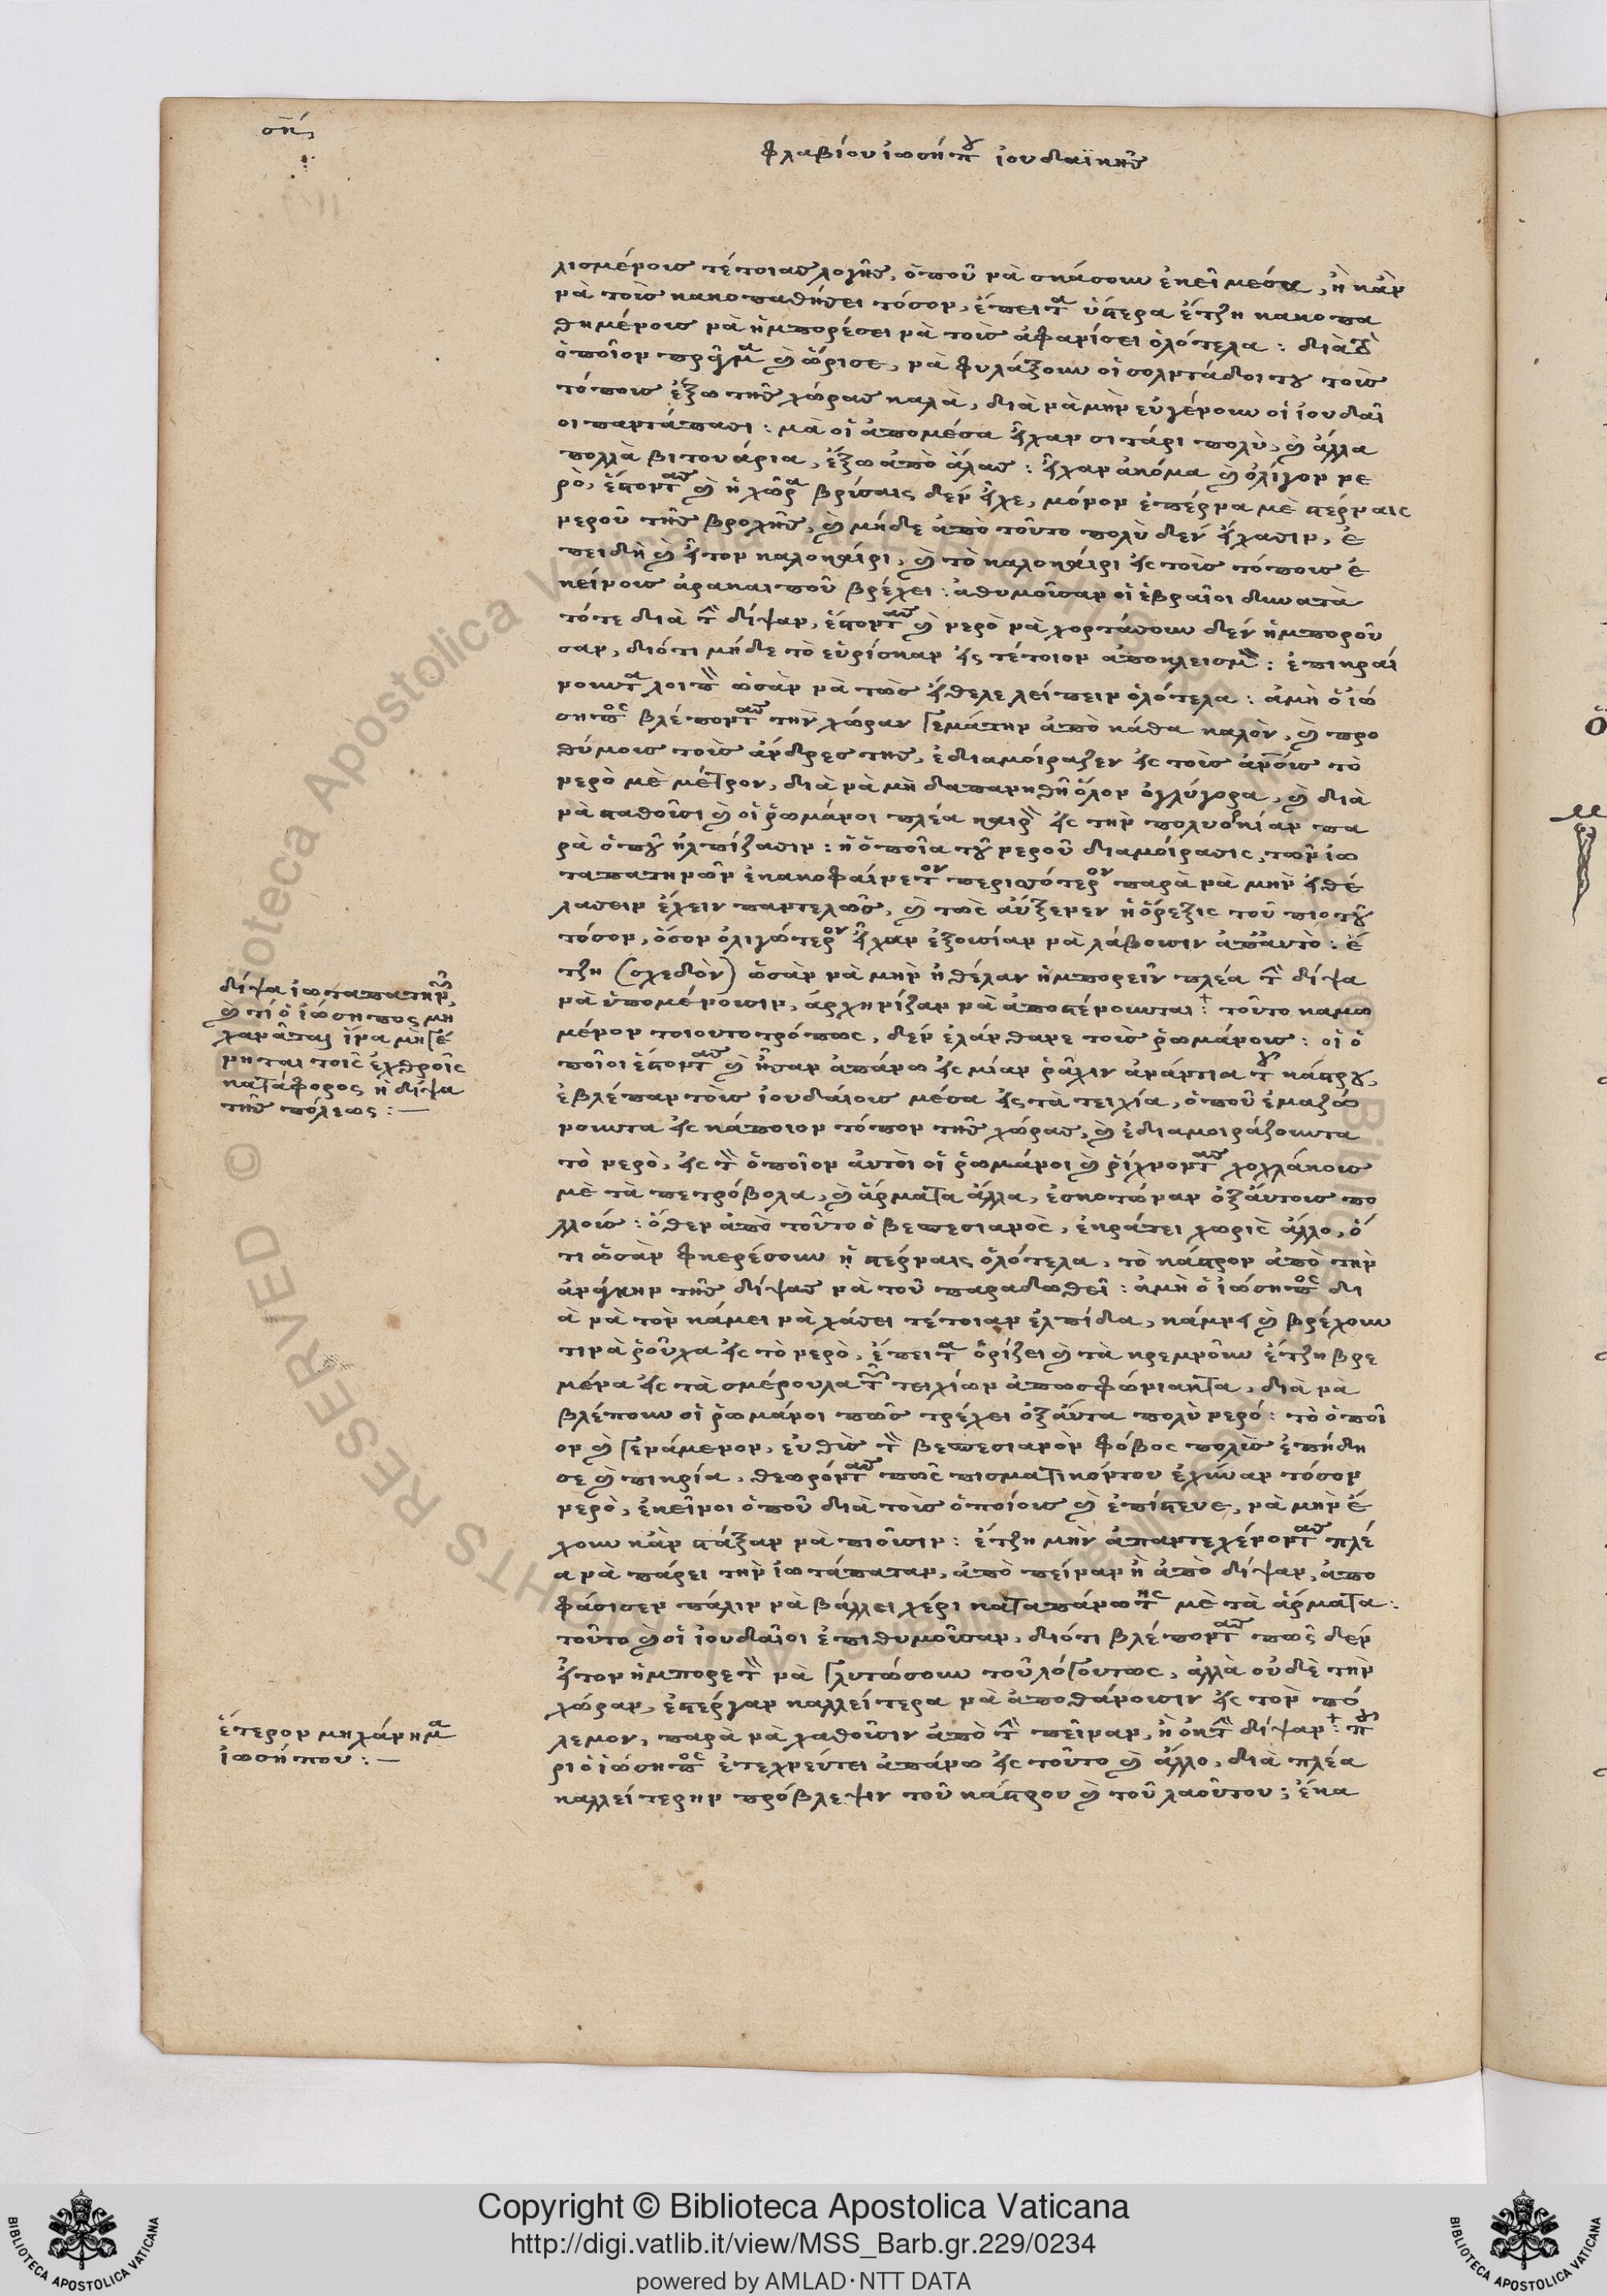 σῆ,
φλαβίου ἰωσήπου ἰουδαϊκῆς
λισμένους τέτοιας λογῆς, ὁποῦ νὰ σκάσουν ἐκεῖ μέσα, ἢ κἂν
νὰ τοὺς κακοπαθήσει τόσον, ἔπειτα ὕστερα ἔτζη κακοπα
θημένους νὰ ἠμπορέσει νὰ τοὺς ἀφανίσει ὁλότελα : διὰ τὸ
ὁποῖον πρᾶγμα καὶ ὥρισε, νὰ φυλάξουν οἱ σολντάδοι του τοὺς
τόπους ἔξω τῆς χώρας καλὰ, διὰ νὰ μὴν εὐγένουν οἱ ἰουδαῖ
οι παντάπασι : μὰ οἱ ἀπομέσα εἶχαν σιτάρι πολὺ, καὶ ἄλλα
πολλὰ βιτουάρια, ἔξω ἀπὸ ἅλας : εἶχαν ἀκόμα καὶ ὀλίγον νε
ρὸ, ἔστοντας καὶ ἡ χώρα βρύσαις δὲν εἶχε, μόνον ἐπέρνα μὲ στέρναις
νεροῦ τῆς βροχῆς, καὶ μήδε ἀπὸ τοῦτο πολὺ δὲν εἴχασιν, ἐ
πειδὴ καὶ ἦτον καλοκαίρι, καὶ τὸ καλοκαίρι εἰς τοὺς τόπους ἐ
κείνους ἀρακαιποῦ βρέχει : ἀθυμοῦσαν οἱ ἑβραῖοι δυνατὰ
τότε διὰ τὴν δίψαν, ἔστοντας καὶ νερὸ νὰ χορτάσουν δὲν ἠμποροῦ
σαν, διότι μήδε τὸ εὑρίσκαν εἰς τέτοιον ἀποκλεισμὸν : ἐπικραί
νουντα λοιπὸν ὡσὰν νὰ τὼς ἤθελε λείπειν ὁλότελα : ἀμὴ ὁ ἰώ
σηπος βλέποντας τὴν χώραν γεμάτην ἀπὸ κάθα καλὸν, καὶ προ
θύμους τοὺς ἄνδρες της, ἐδιαμοίραζεν εἰς τοὺς ἀνθρώπους τὸ
νερὸ μὲ μέτρον, διὰ νὰ μὴ δαπανηθῇ ὅλον ὀγλύγορα, καὶ διὰ
νὰ σταθοῦσι καὶ οἱ ῥωμάνοι πλέα καιρὸν εἰς τὴν πολυορκίαν πα
ρὰ ὁποῦ ἠλπίζασιν : ἡ ὁποῖα τοῦ νεροῦ διαμοίρασις, τῶν ἰω
ταπατηνῶν ἐκακοφαίνετον περισσότερον παρὰ νὰ μὴν ἠθέ
λασειν ἔχειν παντελῶς, καὶ τὼς αὔξενεν ἡ ὄρεξις τοῦ πιοτοῦ
τόσον, ὅσον ὀλιγώτερον εἶχαν ἐξουσίαν νὰ λάβουσιν ἀπ᾽αὐτὸ : ἔ
τζη (σχεδὸν) ὡσὰν νὰ μὴν ἠθέλαν ἠμπορεῖν πλέα τὴν δίψα
νὰ ὑπομένουσιν, ἀρχηνίζαν νὰ ἀποστένουνται : τοῦτο καμω
μένον τοιουτοτρόπως, δὲν ἐλάνθανε τοὺς ῥωμάνους : οἱ ὁ
ποῖοι ἔστοντας καὶ ἦσαν ἀπάνω εἰς μίαν ῥάχιν ἀνάντια τοῦ κάστρου,
ἐβλέπαν τοὺς ἰουδαίους μέσα εἰς τὰ τειχία, ὁποῦ ἐμαζώ
νουντα εἰς κάποιον τόπον τῆς χώρας, καὶ ἐδιαμοιράζουντα
τὸ νερὸ, εἰς τὸν ὁποῖον αὐτοὶ οἱ ῥωμάνοι καὶ ῥίχνοντας χοχλάκους
μὲ τὰ πετρόβολα, καὶ ἄρματα ἄλλα, ἐσκοτώναν ὀξαύτους πο
λλούς : ὅθεν ἀπὸ τοῦτο ὁ βεσπεσιανὸς, ἐκράτει χωρὶς ἄλλο, ὅ
τι ὡσὰν φκερέσουν ἡ στέρναις ὁλότελα, τὸ κάστρον ἀπὸ τὴν
ἀνάγκην τῆς δίψας νὰ τοῦ παραδωθεῖ : ἀμὴ ὁ ἰώσηπος δι
ὰ νὰ τὸν κάμει νὰ χάσει τέτοιαν ἐλπίδα, κάμνει καὶ βρέχουν
τινὰ ῥοῦχα εἰς τὸ νερὸ, ἔπειτα ὁρίζει καὶ τὰ κρεμνοῦν ἔτζη βρε
μένα εἰς τὰ σμέρουλα τῶν τειχίων ἀπωσφώριαντα, διὰ νὰ
βλέπουν οἱ ῥωμάνοι πῶς τρέχει ὀξαύτα πολὺ νερό : τὸ ὁποῖ
ον καὶ γενάμενον, εὐθὺς τὸν βεσπεσιανὸν φόβος πολὺς ἐπήδη
σε καὶ πικρία, θεωρόντας πῶς πισματικόντου ἐχύναν τόσον
νερὸ, ἐκεῖνοι ὁποῦ διὰ τοὺς ὁποίους καὶ ἐπίστευε, νὰ μὴν ἔ
χουν κἂν στάξαν νὰ πιοῦσιν : ἔτζη μὴν ἀπαντεχένοντας πλέ
α νὰ πάρει τὴν ἰωτάπαταν, ἀπὸ πεῖναν ἢ ἀπὸ δίψαν, ἀπο
φάσισεν πάλιν νὰ βάλλει χέρι καταπάνωτης μὲ τὰ ἄρματα :
τοῦτο καὶ οἱ ἰουδαῖοι ἐπιθυμοῦσαν, διότι βλέποντας πῶς δὲν
ἦτον ἠμπορετὸν νὰ γλυτώσουν τοῦ λόγουντως, ἀλλὰ οὐδὲ τὴν
χώραν, ἐστέργαν καλλείτερα νὰ ἀποθάνουσιν εἰς τὸν πό
λεμον, παρὰ νὰ χαθοῦσιν ἀπὸ τὴν πεῖναν, ἢ ὀκ τὴν δίψαν : που
ρι ὁ ἰώσηπος ἐτεχνεύτει ἀπάνω εἰς τοῦτο καὶ ἄλλο, διὰ πλέα
καλλείτερην πρόβλεψιν τοῦ κάστρου καὶ τοῦ λαοῦτου ; ἕκα
δίψα ἰωταπατηνῶν,
καὶ τί ὁ ἰώσηπος μη
χανᾶται ἵνα μὴ γέ
νηται τοῖς ἐχθροῖς
κατάφορος ἡ δίψα
τῆς πόλεως : —
ἕτερον μηχάνημα
ἰωσήπου : —
Copyright © Biblioteca Apostolica Vaticana
http://digi.vatlib.it/view/MSS_Barb.gr.229/0234
powered by AMLAD·NTT DATA
BIBLIOTECA APOSTOLICA VATICANA
BIBLIOTECA APOSTOLICA VATICANA